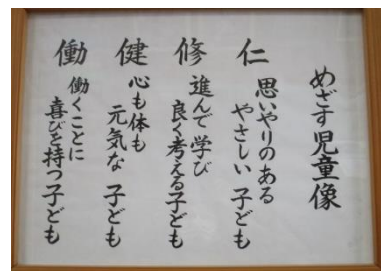 めざす児童像
仁
思いやりのある
やさしい子ども
修
進んで学び
良く考える子ども
健
心も体も
元気な子ども
働
働くことに
喜びを持つ子ども